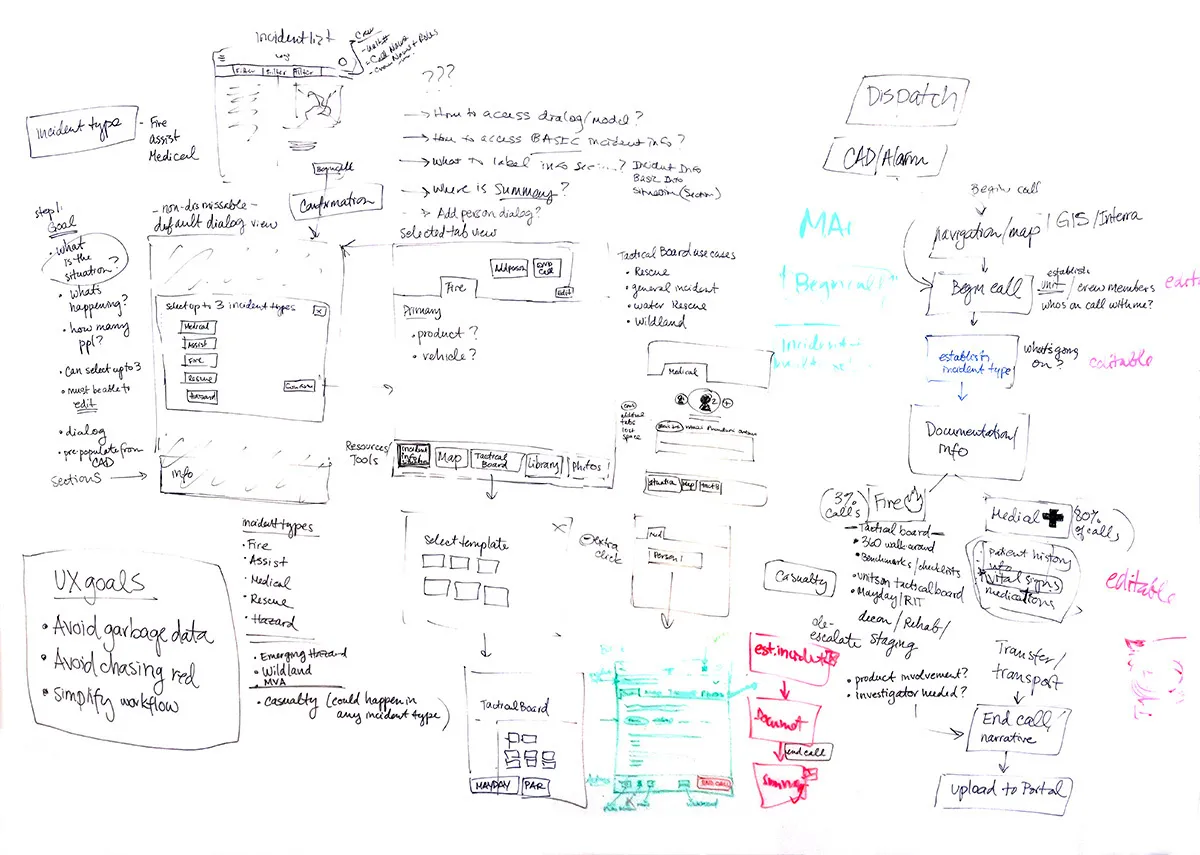 Incident list
Filter Filter Filter
Crew
- Unit#
- Call Name
- Crew Names + Roles
Begin call
Confirmation
Incident type
- Fire
assist
Medical
???
→ How to access dialog/model?
→ How to access BASIC incident info?
→ What to label info sec....?
Incident Info
Basic Info
Situation (Section)
→ Where is Summary?
→ Add person dialog?
Step 1:
Goal
• What is the situation?
• What's happening?
• how many ppl?
• can select up to 3
• must be able to edit
• dialog
• pre-populate from CAD
sections →
- non-dismissable -
default dialog view
Select up to 3 incident types
X
Medical
Assist
Fire
Rescue
Hazard
Confirm
info
selected tab view
Add person
END CALL
Fire
Edit
Primary
• product?
• vehicle?
Resources/
Tools
Map
Tactical Board
Library
Photos
Tactical Board use cases
• Rescue
• general incident
• water Rescue
• Wildland
Medical
2
+
situation
UX goals
• Avoid garbage data
• Avoid chasing red
• simplify workflow
incident types
• Fire
• Assist
• Medical
• Rescue
• Hazard
• Emerging Hazard
• Wildland
• MVA
• casualty (could happen in
any incident type)
select template
X
extra
click
Person 1
Tactical Board
MAYDAY
PAR
END CALL
est. incident
Document
end call
Dispatch
CAD/Alarm
Begin call
Navigation/map / GIS/Interra
Begin call
establish
unit / crew members
who's on call with me?
establish
incident type
what's going
on?
editable
Documentation/
Info
(3% calls)
Fire
- Tactical board -
• 360 walk-around
• Benchmarks/checklists
• units on tactical board
• Mayday/RIT
decon/Rehab/
staging
de-
escalate
• product involvement?
• investigator needed?
Casualty
Medical
80%
of calls
• patient history
• info
• vital signs
medications
editable
Transfer/
transport
End call
narrative
upload to Portal
MAr
Begin call
Incident